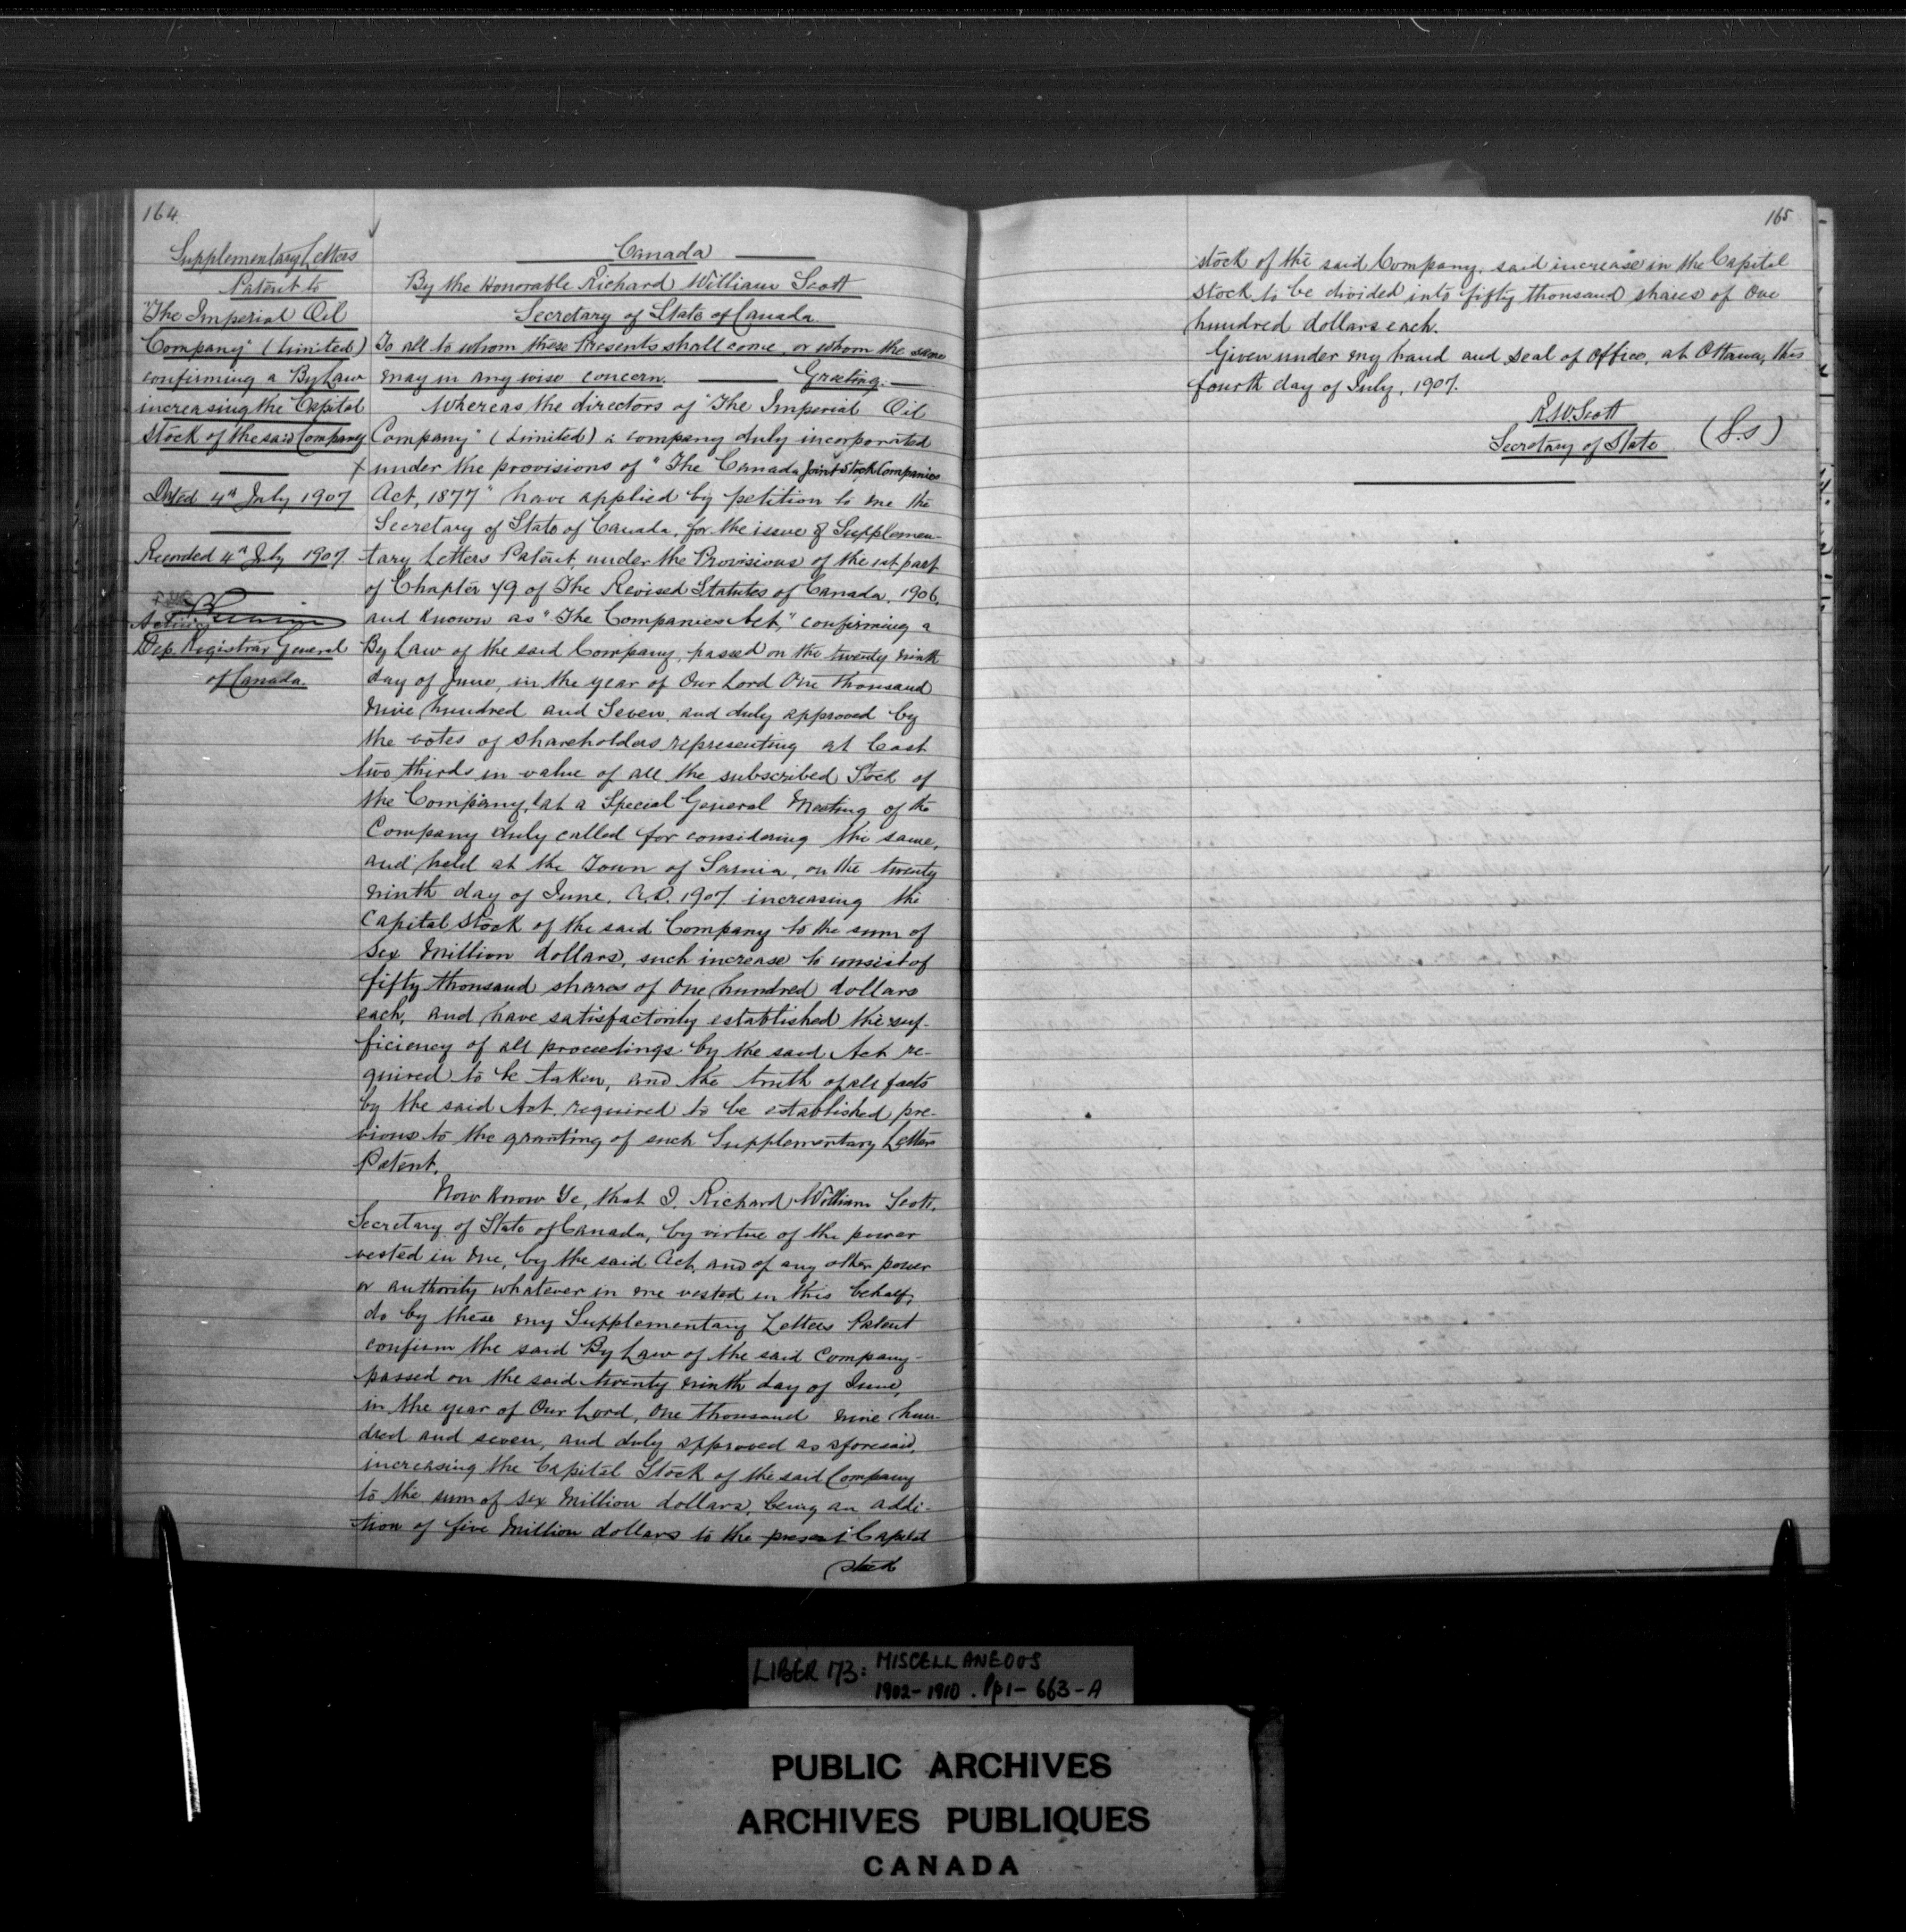 164.
Supplementary Letters
Patent to
"The Imperial Oil
Company" (Limited)
confirming a By Law
increasing the Capital
Stock of the said Company
Dated 4th July 1907
Recorded 4th July 1907.
Acting
Dep. Registrar General
of Canada.
Canada
By the Honorable Richard William Scott
Secretary of State of Canada.
To all to whom these Presents shall come, or whom the same
may in any wise concern. Greeting.
Whereas the directors of "The Imperial Oil
Company" (Limited) a company duly incorporated
x under the provisions of "The Canada Joint Stock Companies
Act, 1877" have applied by petition to me the
Secretary of State of Canada, for the issue of Supplemen-
tary Letters Patent, under the Provisions of the 1st part
of Chapter 79 of The Revised Statutes of Canada, 1906,
and known as "The Companies Act," confirming a
By Law of the said Company, passed on the twenty ninth
day of June, in the year of Our Lord One thousand
nine hundred and Seven, and duly approved by
the votes of shareholders representing at least
two thirds in value of all the subscribed Stock of
the Company, at a Special General Meeting of the
Company duly called for considering the same,
and held at the Town of Sarnia, on the twenty
ninth day of June. A.D. 1907 increasing the
Capital Stock of the said Company to the sum of
Six Million dollars, such increase to consist of
fifty thousand shares of One hundred dollars
each, and have satisfactorily established the suf-
ficiency of all proceedings by the said Act re-
quired to be taken, and the truth of all facts
by the said Act required to be established pre-
vious to the granting of such Supplementary Letters
Patent.
Now Know Ye, that I, Richard William Scott,
Secretary of State of Canada, by virtue of the power
vested in me, by the said Act, and of any other power
or authority whatever in me vested in this behalf,
do by these my Supplementary Letters Patent
confirm the said By Law of the said Company
passed on the said twenty ninth day of June,
in the year of Our Lord, One thousand nine hun-
dred and seven, and duly approved as aforesaid,
increasing the Capital Stock of the said Company
to the sum of six Million dollars, being an addi-
tion of five Million dollars to the present Capital
stock
165
stock of the said Company, said increase in the Capital
stock to be divided into fifty thousand shares of One
hundred dollars each.
Given under my hand and Seal of Office, at Ottawa, this
fourth day of July, 1907.
R.W. Scott
Secretary of State (L.S)
LIBER 173: MISCELLANEOUS
1902-1910. Pp1-663-A
PUBLIC ARCHIVES
ARCHIVES PUBLIQUES
CANADA